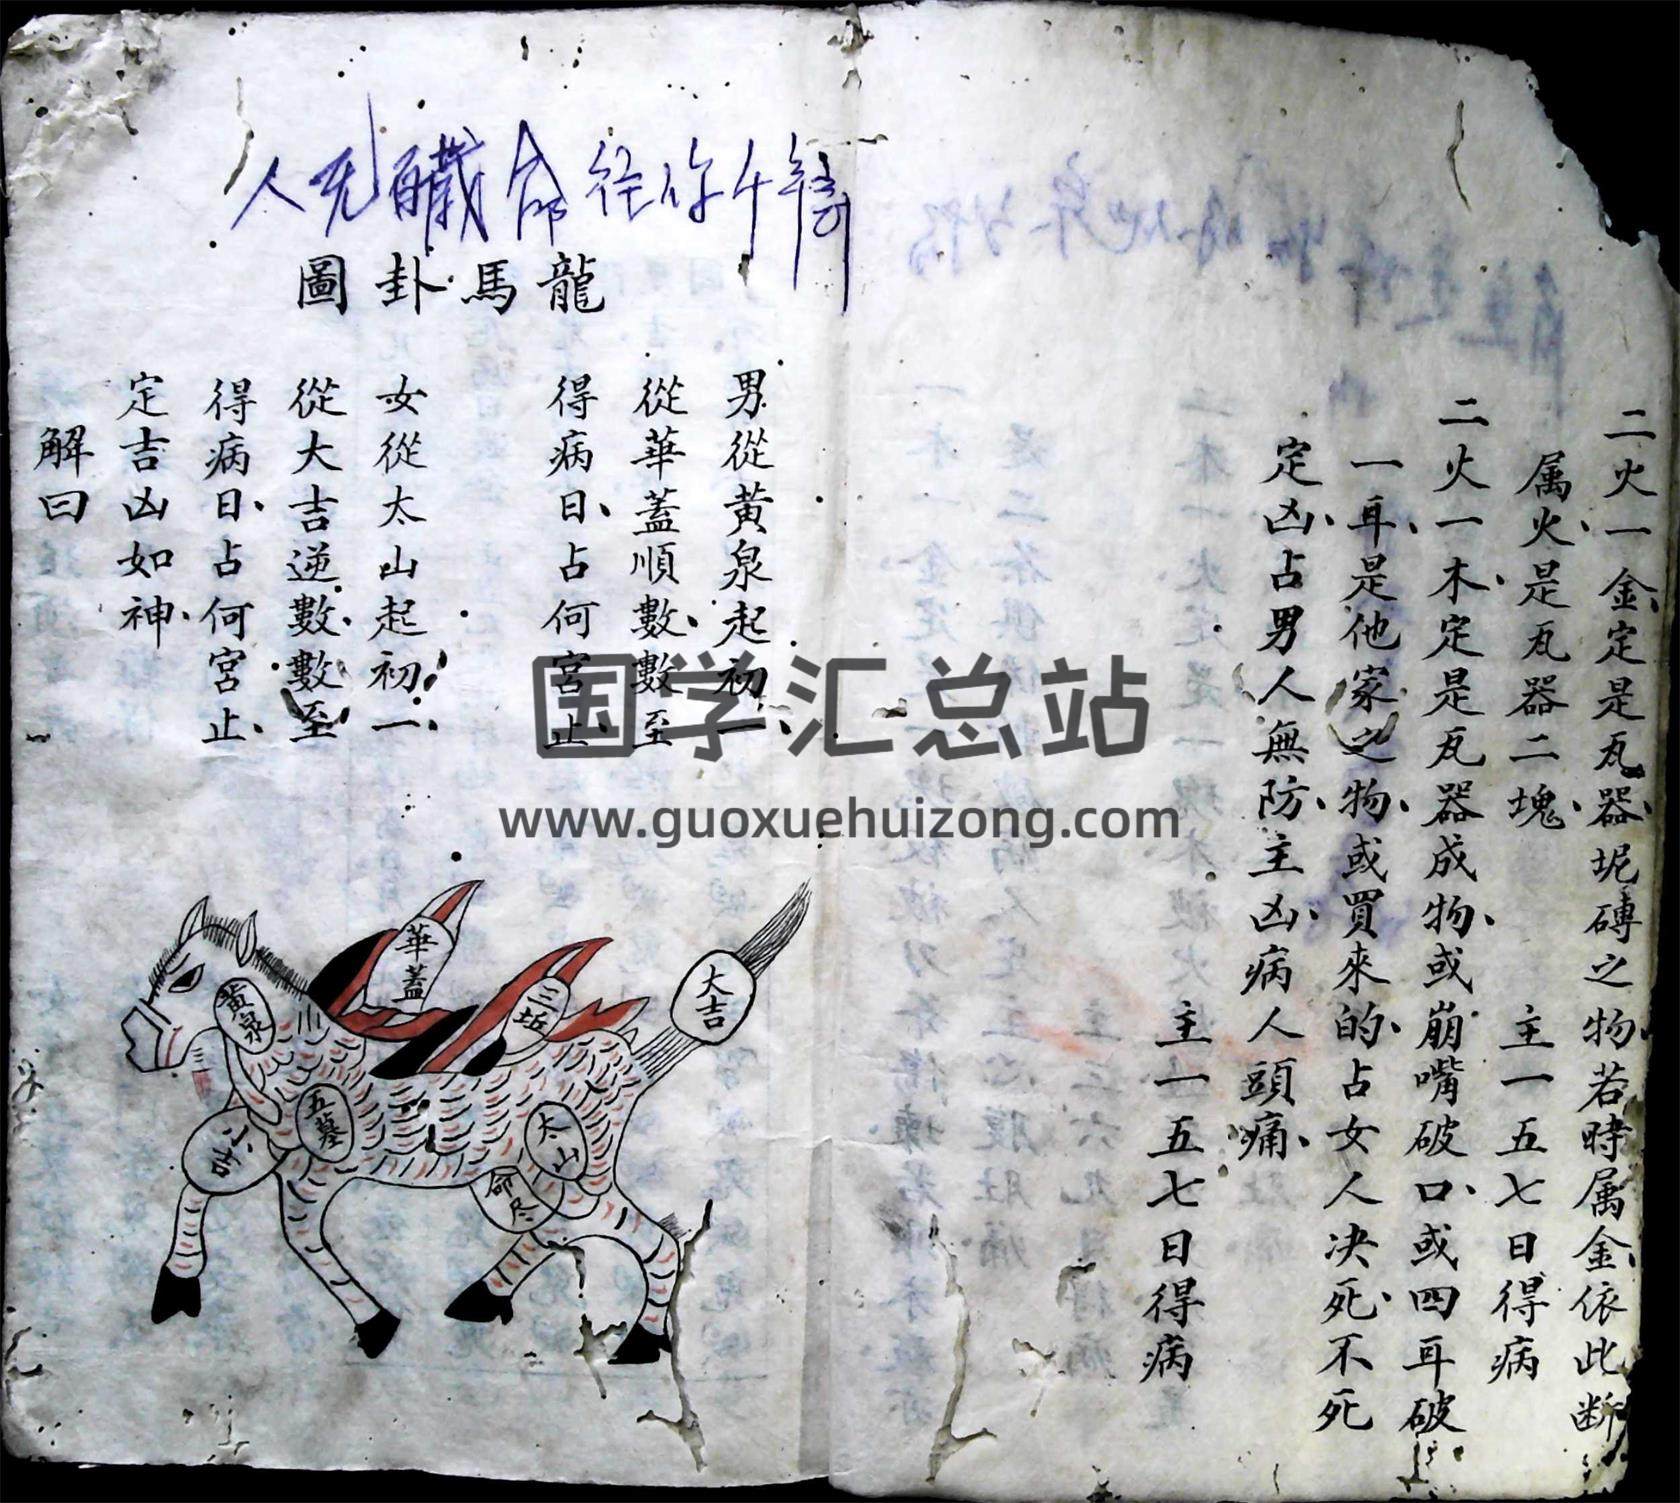 二火一金定是瓦器坭磚之物若時属金依此断
属火是瓦器二塊 主一五七日得病
二火一木定是瓦器成物或崩嘴破口或四耳破
一耳是他家之物或買來的占女人决死不死
定凶占男人無防主凶病人頭痛
主一五七日得病
龍馬卦圖
男從黄泉起初一
從華蓋順數數至
得病日占何宮止
女從太山起初一
從大吉逆數數至
得病日占何宮止
定吉凶如神
解曰
華蓋
黄泉
三坵
大吉
五墓
小吉
太山
命尽
国学汇总站
www.guoxuehuizong.com